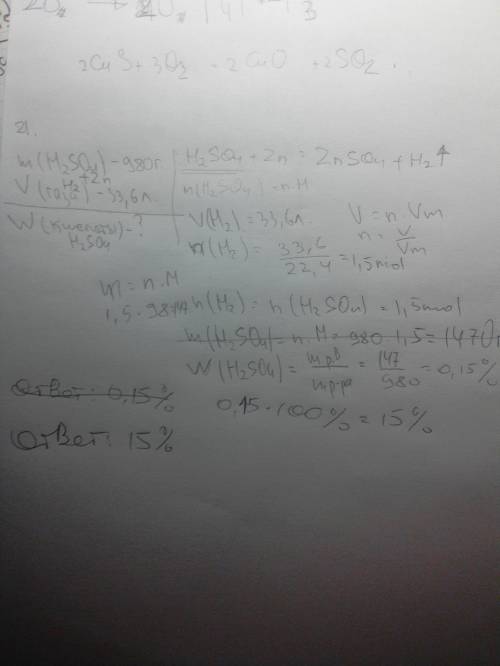 2CuS + 3O2 = 2CuO + 2SO2.
21.
m(H2SO4) - 980г.
V(газа) - 33,6л.
W(кислоты) - ?
H2SO4
H2SO4 + Zn = ZnSO4 + H2↑
n(H2SO4) = n.M
V(H2) = 33,6л.
V = n.Vm
n = V/Vm
n(H2) = 33,6/22,4 = 1,5mol
m = n.M
n(H2) = n(H2SO4) = 1,5mol
m(H2SO4) = n.M = 980.1,5 = 1470г
W(H2SO4) = mрв/mр-ра = 147/980 = 0,15%
0,15.100% = 15%
Ответ: 0,15%
Ответ: 15%